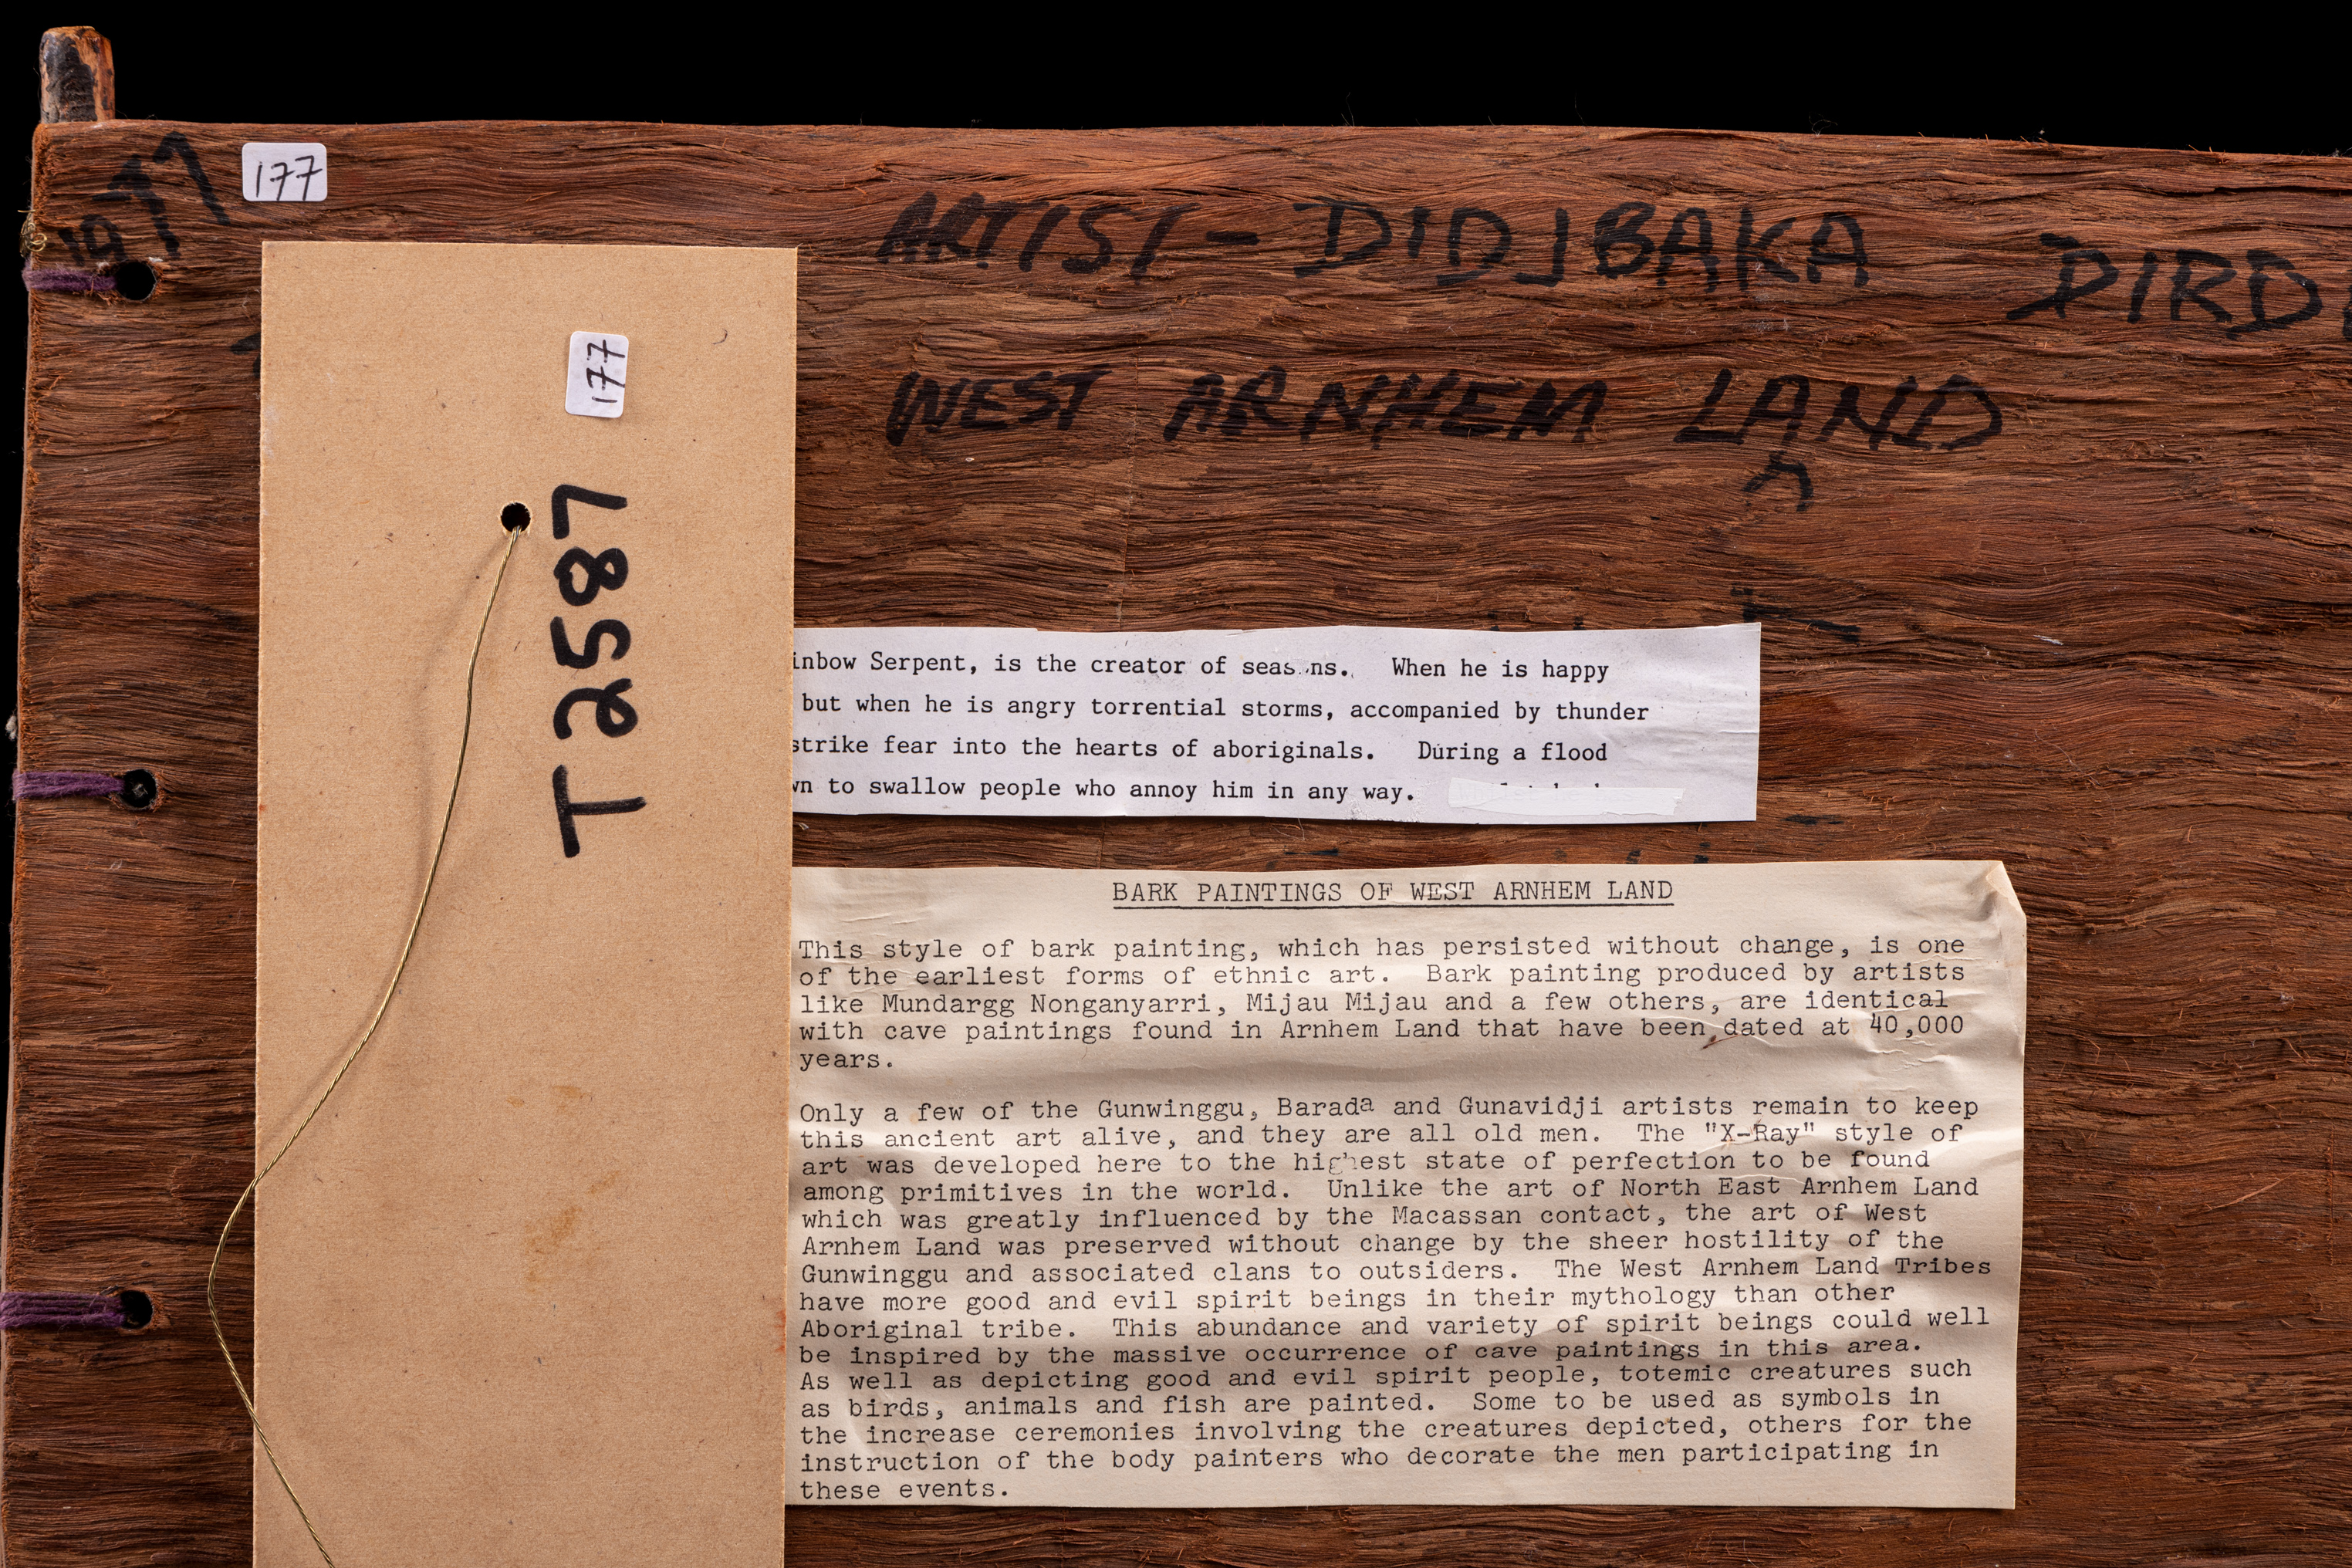 1977
177
ARTIST - DIDJBAKA DIRD
WEST ARNHEM LAND
177
T2587
inbow Serpent, is the creator of seas ns. When he is happy
but when he is angry torrential storms, accompanied by thunder
strike fear into the hearts of aboriginals. During a flood
wn to swallow people who annoy him in any way.
BARK PAINTINGS OF WEST ARNHEM LAND
This style of bark painting, which has persisted without change, is one
of the earliest forms of ethnic art. Bark painting produced by artists
like Mundargg Nonganyarri, Mijau Mijau and a few others, are identical
with cave paintings found in Arnhem Land that have been dated at 40,000
years.
Only a few of the Gunwinggu, Barada and Gunavidji artists remain to keep
this ancient art alive, and they are all old men. The "X-Ray" style of
art was developed here to the highest state of perfection to be found
among primitives in the world. Unlike the art of North East Arnhem Land
which was greatly influenced by the Macassan contact, the art of West
Arnhem Land was preserved without change by the sheer hostility of the
Gunwinggu and associated clans to outsiders. The West Arnhem Land Tribes
have more good and evil spirit beings in their mythology than other
Aboriginal tribe. This abundance and variety of spirit beings could well
be inspired by the massive occurrence of cave paintings in this area.
As well as depicting good and evil spirit people, totemic creatures such
as birds, animals and fish are painted. Some to be used as symbols in
the increase ceremonies involving the creatures depicted, others for the
instruction of the body painters who decorate the men participating in
these events.